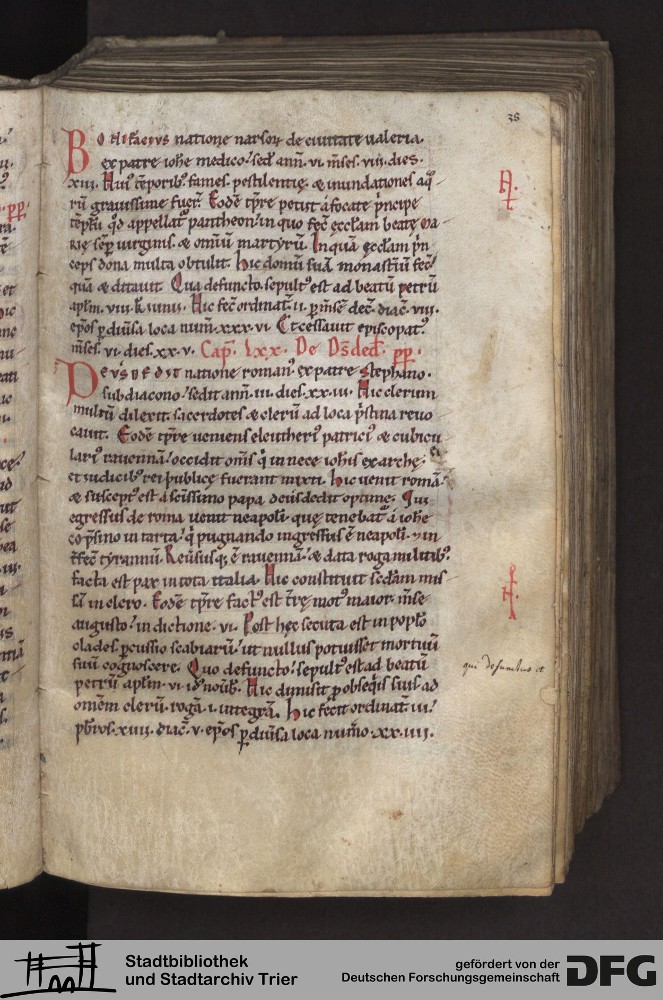 38
BONIFACIVS natione narsorꝝ de ciuitate ualeria.
ex patre ioħe medico. sed̄ ann̄. vi. m̄ses. viii. dies.
xiii. Huiꝰ tēporibꝰ fames. pestilentię. & inundationes aq̄
rū grauissime fuer̄. Eodē tp̄re petiit a focate p̄ncipe
tēplū qd̄ appellatꝰ pantheon. in quo fec̄ ęccl̄am beatę ma
rię sēp uirginis. & omīū martyrū. In qua ęccl̄am p̄n
ceps dona multa obtulit. Hic domū suā monast̄iū fec̄
quā & ditauit. Qua defuncto. sepultꝰ est ad beatū petrū
apl̄m. viii. k̄ iunii. Hic fec̄ ordinat̄. ii. p̄ m̄se dec̄. diac̄. viii.
ep̄os p̄ diūsa loca num̄. xxx. vi. Et cessauit episcopatꝰ
m̄ses. vi. dies. xx. v. Cap̄. Lxx. De D̄sded̄. pp̄.
DEVSDEDIT natione romanꝰ ex patre stephano.
subdiacono. sedit ann̄. iii. dies. xx. iii. Hic clerum
multū dilexit. sacerdotes & clerū ad loca p̄stina reuo
cauit. Eodē tp̄re ueniens eleutheriꝰ patriciꝰ & cubicu
lariꝰ rauennā. occidit om̄s q̄ in nece ioħis exarchę.
et iudicibꝰ rei publicę fuerant mixti. Hic uenit romā.
& susceptꝰ est a sc̄issimo papa deusdedit optime. Qui
egressus de roma uenit neapoli. quę tenebat̄ a ioħe
cōpsino intarta. q̄ pugnando ingressus ē neapoli. & in
t̄fec̄ tyrannū. Reuersusq; ē rauennā. & data roga militibꝰ.
facta est pax in tota italia. Hic constituit scd̄am mis
sā in clero. Eodē tp̄re factꝰ est t̄rę motꝰ maior. m̄se
augusto. in dictione. vi. Post hęc secuta est in pop̄lo
clades. p̄cussio scabiarū. ut nullus potuisset mortuū
suū cognoscere. Quo defuncto. sepultꝰ est ad beatū
petrū apl̄m. vi. id̄ nouēb̄. Hic dimisit p̄ obseq̄is suis ad
omēm clerū. rogā. i. integrā. Hic fecit ordinat̄. iii.
p̄b̄ros. xiiii. diac̄. v. ep̄os p̄ diūsa loca num̄o. xx. iiii.
qui defunctus et
Stadtbibliothek
und Stadtarchiv Trier
gefördert von der
Deutschen Forschungsgemeinschaft
DFG